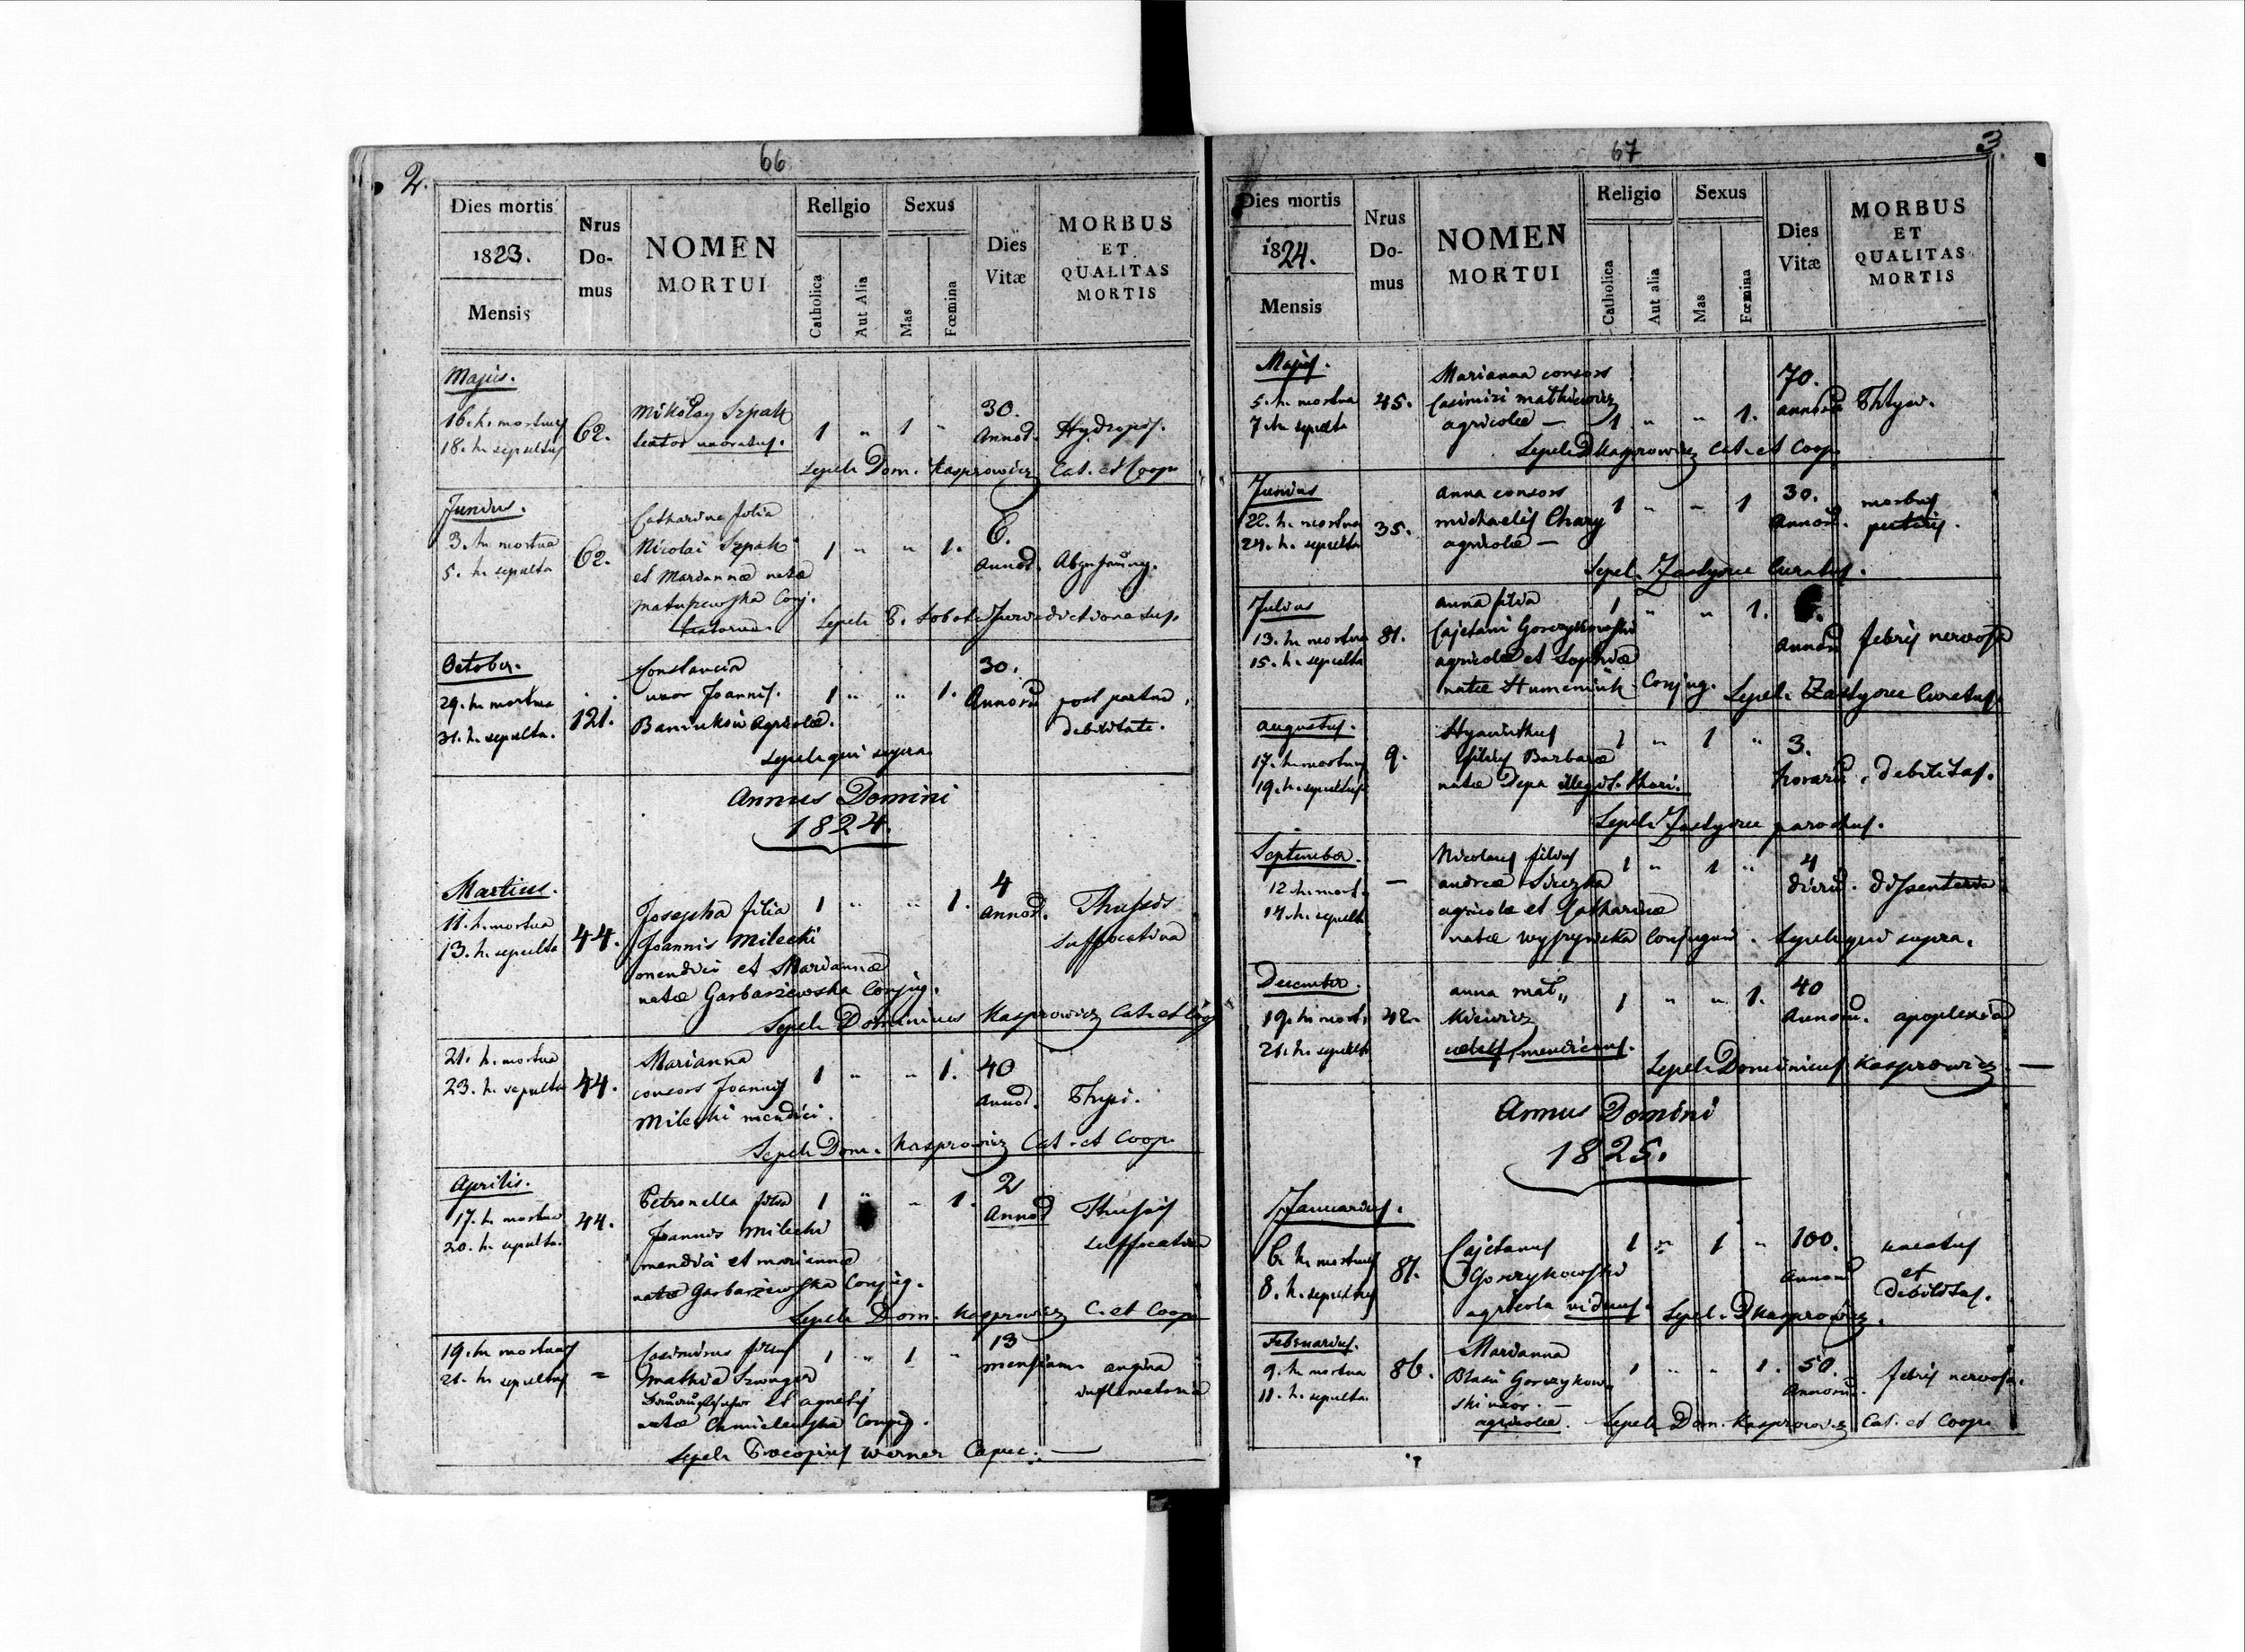 2.
66
Dies mortis
1823.
Mensis
Nrus
Do-
mus
NOMEN
MORTUI
Religio
Catholica
Aut Alia
Sexus
Mas
Fœmina
Dies
Vitæ
MORBUS
ET
QUALITAS
MORTIS
Majus.
16. h. mortuus
18. h. sepultus
62.
Mikołay Szpak
textor uxoratus.
1 " 1 "
30.
Annor.
Hydrops.
Sepel. Dom. Kasprowicz Cat. et Coop.
Junius.
3. h. mortua
5. h. sepulta
62.
Catharina filia
Nicolai Szpak
et Mariannæ natæ
Matuszewska Conj.
textoris.
1 " " 1.
6.
Annor.
Abzehrung.
Sepel. P. Sobota Jurisdictionatus.
October.
29. h. mortua
31. h. sepulta.
121.
Constancia
uxor Joannis.
Baniuksiu Agricolæ.
1 " " 1.
30.
Annoru
post partu
debilitate.
Sepel. qui supra.
Annus Domini
1824.
Martius.
11. h. mortua
13. h. sepulta
44.
Josepha filia
Joannis Milecki
mendici et Mariannæ
natæ Garbarzewska Conjug.
1 " " 1.
4
Annor.
Thussis
suffocativa
Sepel. Dominicus Kasprowicz Cat. et Coop
21. h. mortua
23. h. sepulta
44.
Marianna
consors Joannis
Milecki mendici.
1 " " 1.
40
Annor.
Thysi.
Sepel. Dom. Kasprowicz Cat. et Coop.
Aprilis.
17. h. mortua
20. h. sepulta.
44.
Petronella filia
Joannis Milecki
mendici et Mariannæ
natæ Garbarzewska Conjug.
1 " " 1.
2
Annor
Thussis
suffocativa
Sepel. Dom. Kasprowicz C. et Coop
19. h. mortuus
21. h. sepultus
=
Casimirus filius
Mathiæ Szwager
et Agnetis
natæ Chmielewska Conjug.
1 " 1 "
13
mensium
angina
inflamatoria
Sepel. Procopius Werner Capuc.
3.
67
Dies mortis
1824.
Mensis
Nrus
Do-
mus
NOMEN
MORTUI
Religio
Catholica
Aut alia
Sexus
Mas
Fœmina
Dies
Vitæ
MORBUS
ET
QUALITAS
MORTIS
Majus.
5. h. mortua
7. h. sepulta
45.
Marianna consors
Casimiri Mathiewicz
agricolæ —
1 " " 1.
70.
annoru
Thtysi.
Sepel. D Kasprowicz Cat. et Coop
Junius
22. h. mortua
24. h. sepulta
35.
Anna consors
Michaelis Chary
agricolæ —
1 " " 1
30.
Annor.
morbus
putris.
Sepel. Zastyrec Curatus.
Julius
13. h. mortua
15. h. sepulta
81.
Anna filia
Cajetani Gorczykowski
agricolæ et Sophiæ
natæ Humeniuk Conjug.
1 " " 1.
Annor
febris nervosa
Sepel. Zastyrec Curatus.
Augustus.
17. h. mortuus
19. h. sepultus
9.
Hyacinthus
filius Barbaræ
natæ Depa illegit. thori.
1 " 1 "
3.
horaru.
debilitas.
Sepel. Zastyrec parochus.
September.
12. h. mort.
14. h. sepult.
—
Nicolaus filius
Andreæ Siuzka
agricolæ et Catharinæ
natæ Wyszywska Conjugum.
1 " 1 "
4
dieru.
dissenteria
Sepel. qui supra.
December.
19. h. mort.
21. h. sepulta
42.
Anna Mat„
kiewicz
cœlebs mendicans.
1 " " 1.
40
Annoru.
apoplexia
Sepel. Dominicus Kasprowicz. —
Annus Domini
1825.
Januarius.
6. h. mortuus
8. h. sepultus
81.
Cajetanus
Gorczykowski
agricola viduus.
1 " 1 "
100.
Annoru
et
debilitas.
Sepel. D Kasprowicz.
Februarius.
9. h. mortua
11. h. sepulta.
86.
Marianna
Blasii Gorczykow„
ski uxor. —
agricolæ.
1 " " 1.
50.
Annoru.
febris nervosa.
Sepel. Dom. Kasprowicz Cat. et Coop.